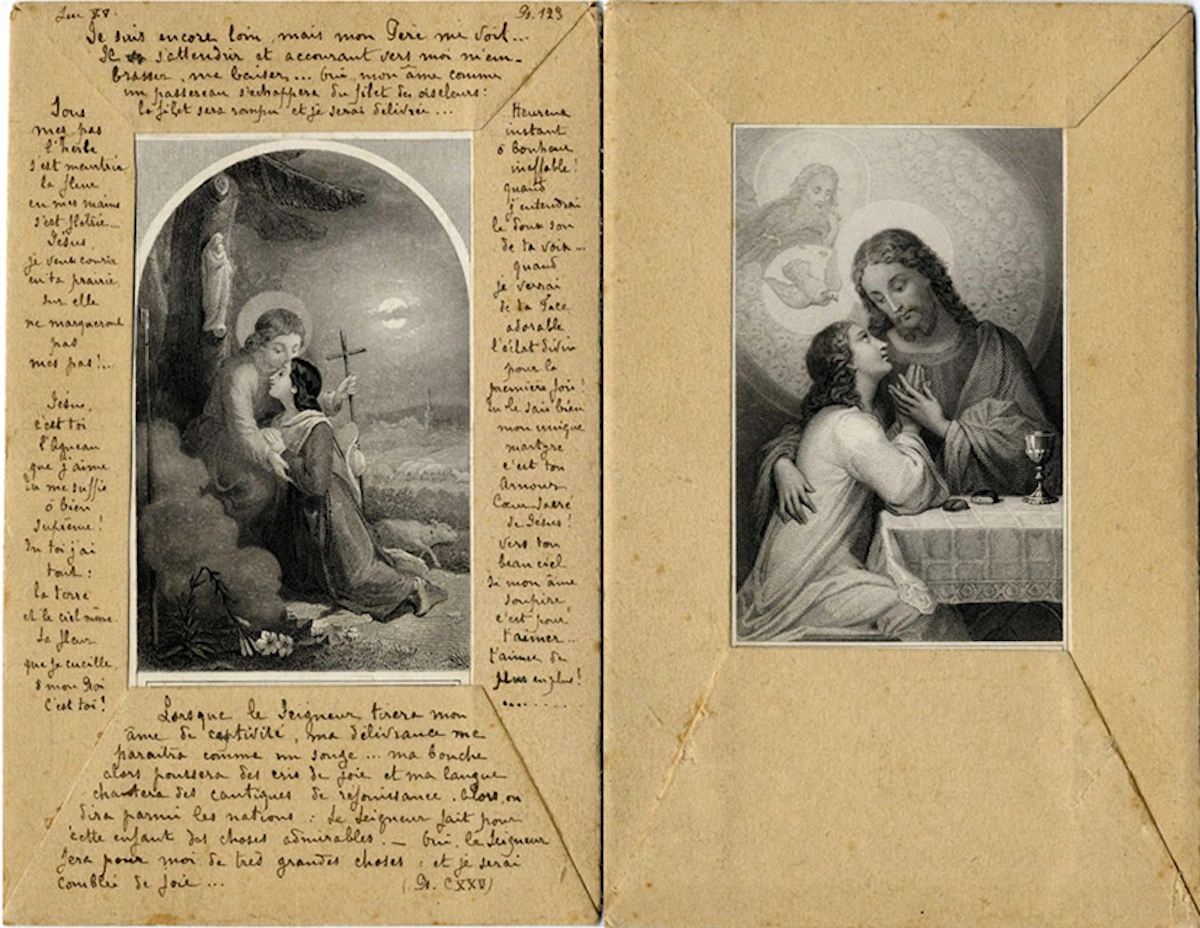 Luc XV.
Ps. 123
Je suis encore loin, mais mon Père me voit...
Il va s'attendrir et accourant vers moi m'em-
brasser, me baiser... Oui, mon âme comme
un passereau s'échappera du filet des oiseleurs:
le filet sera rompu et je serai délivrée...
Sous
mes pas
l'herbe
s'est meurtrie
la fleur
en mes mains
s'est flétrie...
Jésus,
je veux courir
en ta prairie
sur elle
ne marqueront
pas
mes pas!...
Jésus,
c'est toi
l'Agneau
que j'aime
Tu me suffis
ô bien
suprême!
En toi j'ai
tout:
la terre
et le ciel même
La fleur
que je cueille,
ô mon Roi
C'est toi!
Heureux
instant
ô bonheur
ineffable!
quand
j'entendrai
le doux son
de ta voix...
quand
je verrai
de ta Face
adorable
l'éclat divin
pour la
première fois!
Tu le sais bien
mon unique
martyre
c'est ton
Amour
Cœur Sacré
de Jésus!
vers ton
beau ciel
si mon âme
soupire,
c'est pour
t'aimer...
t'aimer de
plus en plus!
........
Lorsque le Seigneur tirera mon
âme de captivité, ma délivrance me
paraîtra comme un songe... ma bouche
alors poussera des cris de joie et ma langue
chantera des cantiques de réjouissance. Alors, on
dira parmi les nations: Le Seigneur fait pour
cette enfant des choses admirables. — Oui, le Seigneur
fera pour moi de très grandes choses: et je serai
comblée de joie...
(Ps. CXXV)